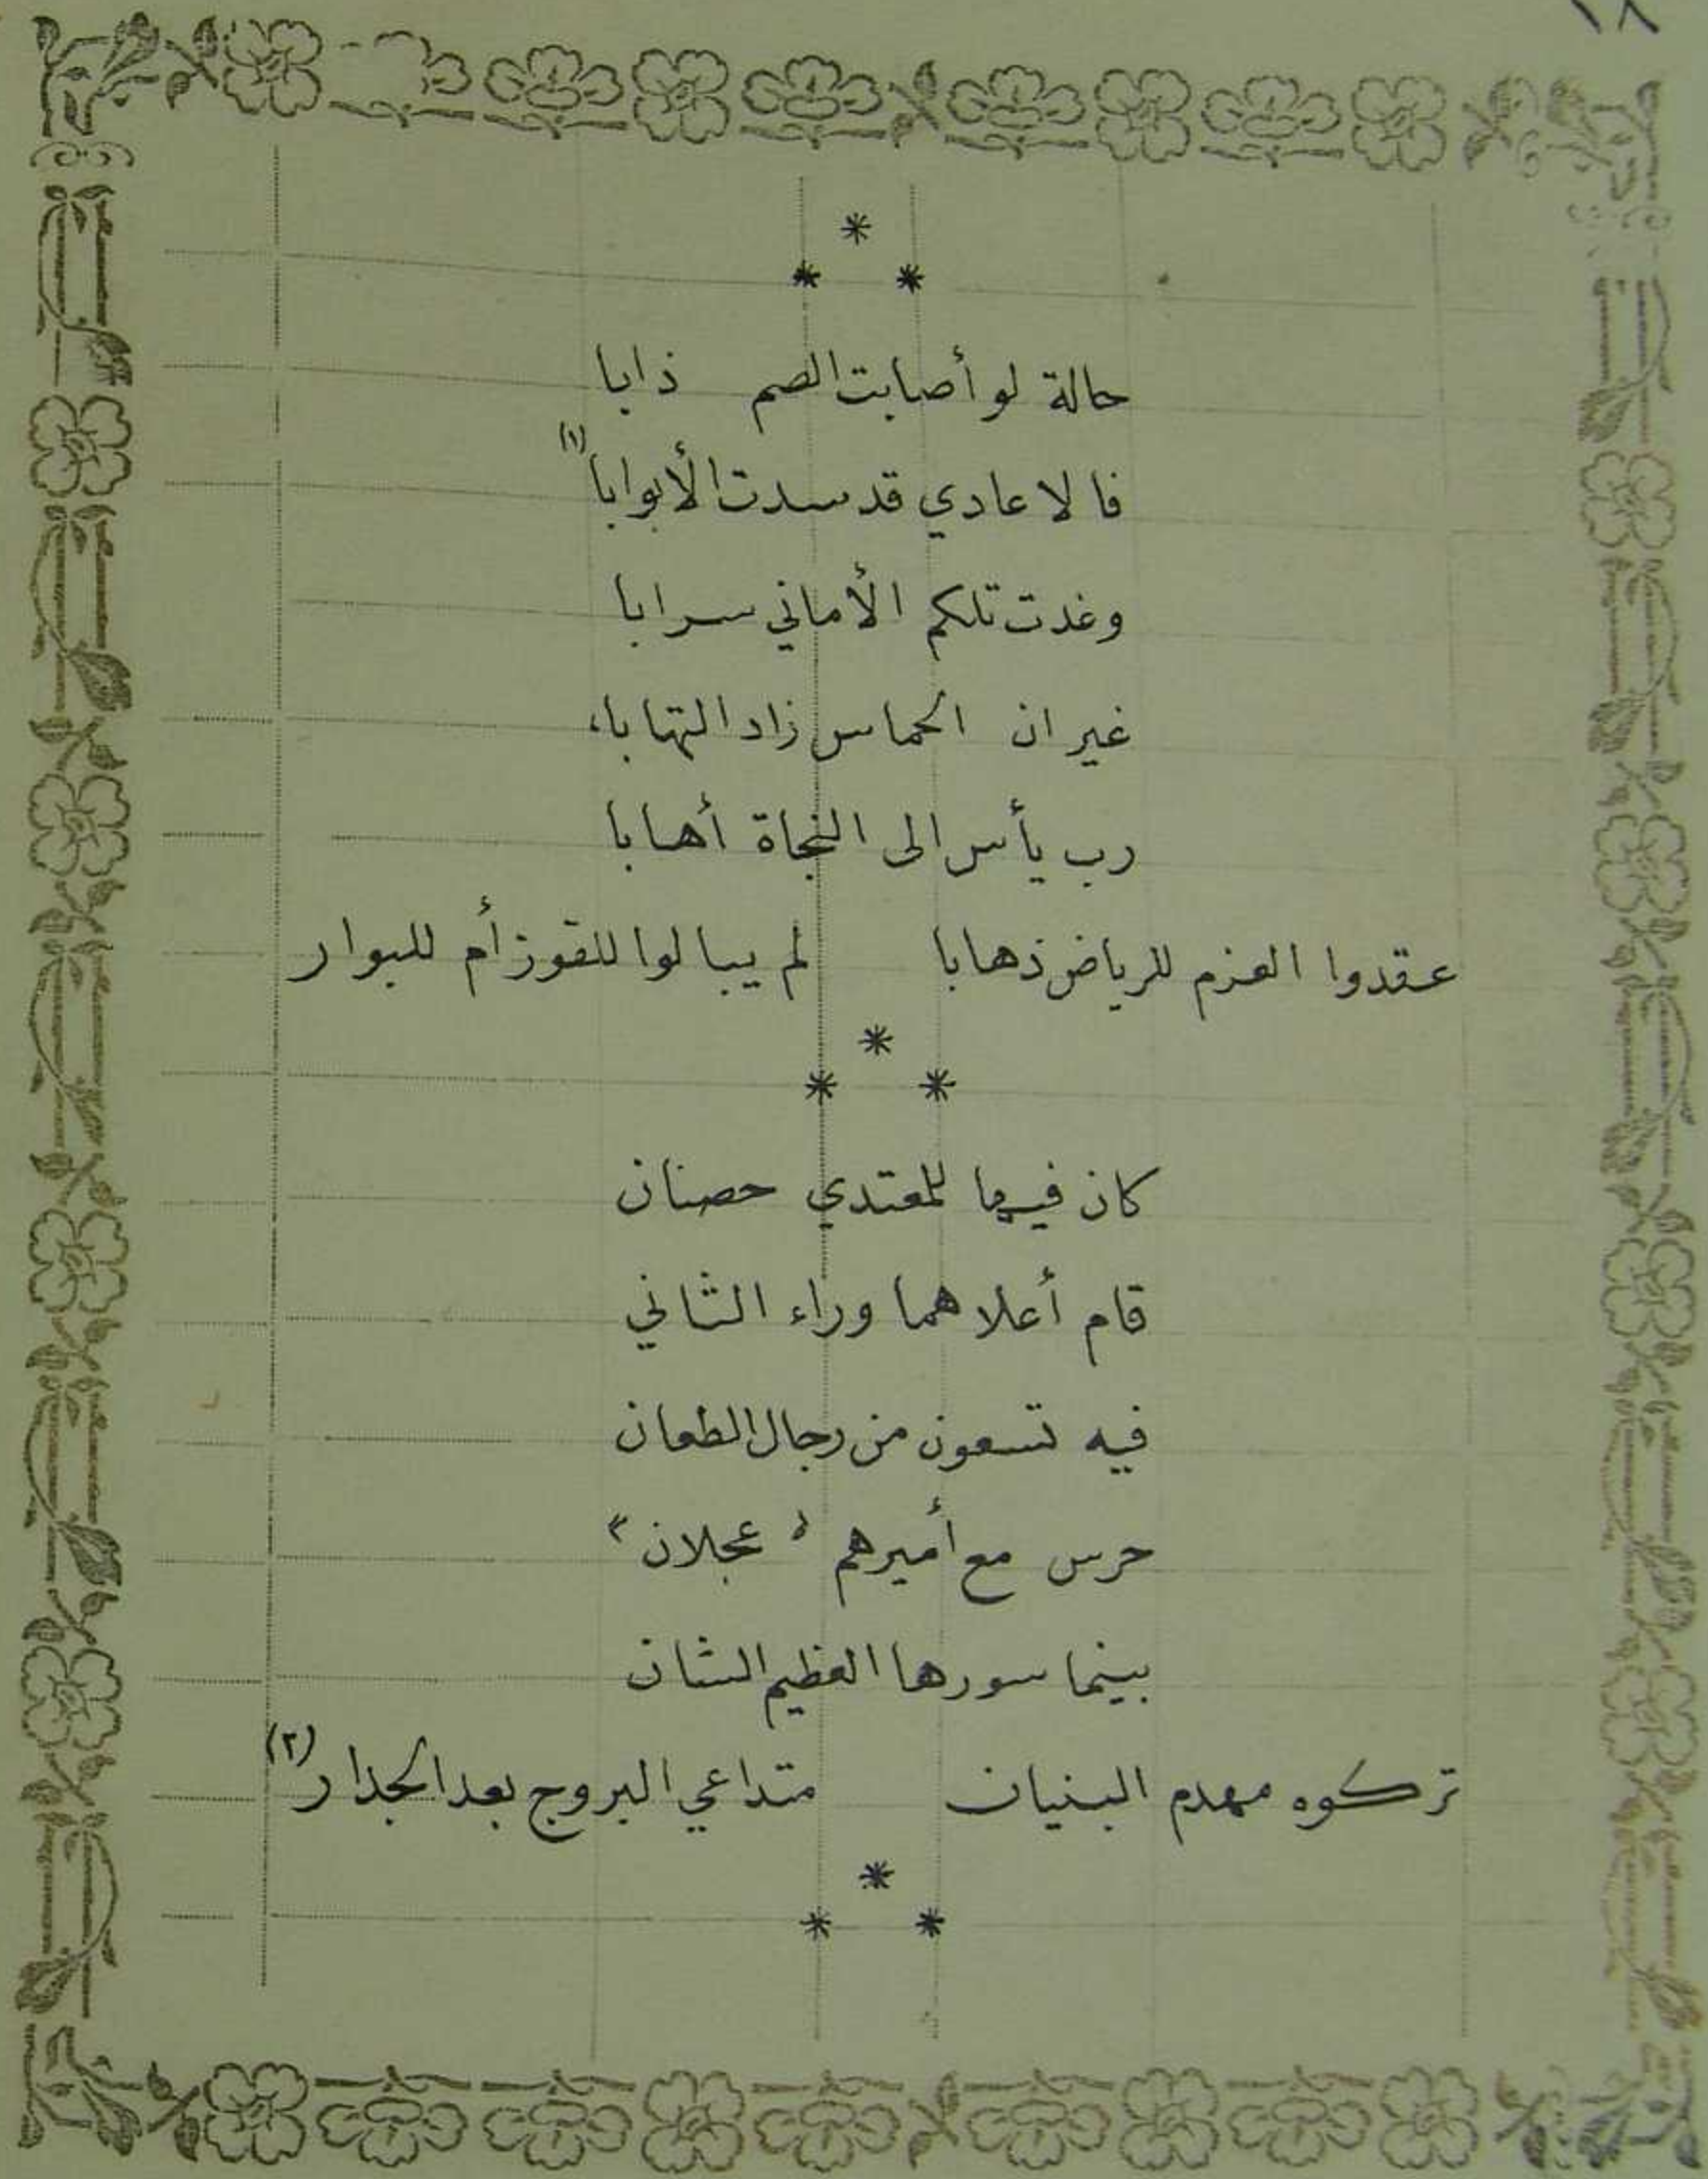 ١٨
*
* *
حالة لو أصابت الصم ذابا
فالاعادي قد سدت الأبوابا (١)
وغدت تلكم الأماني سرابا
غير ان الحماس زاد التهابا،
رب يأس الى النجاة أهابا
عقدوا العزم للرياض ذهابا لم يبالوا للفوز أم للبوار
*
* *
كان فيها للمعتدي حصنان
قام أعلاهما وراء الثاني
فيه تسعون من رجال الطعان
حرس مع أميرهم "عجلان"
بينما سورها العظيم الشان
تركوه مهدم البنيان متداعي البروج بعد الجدار (٢)
*
* *